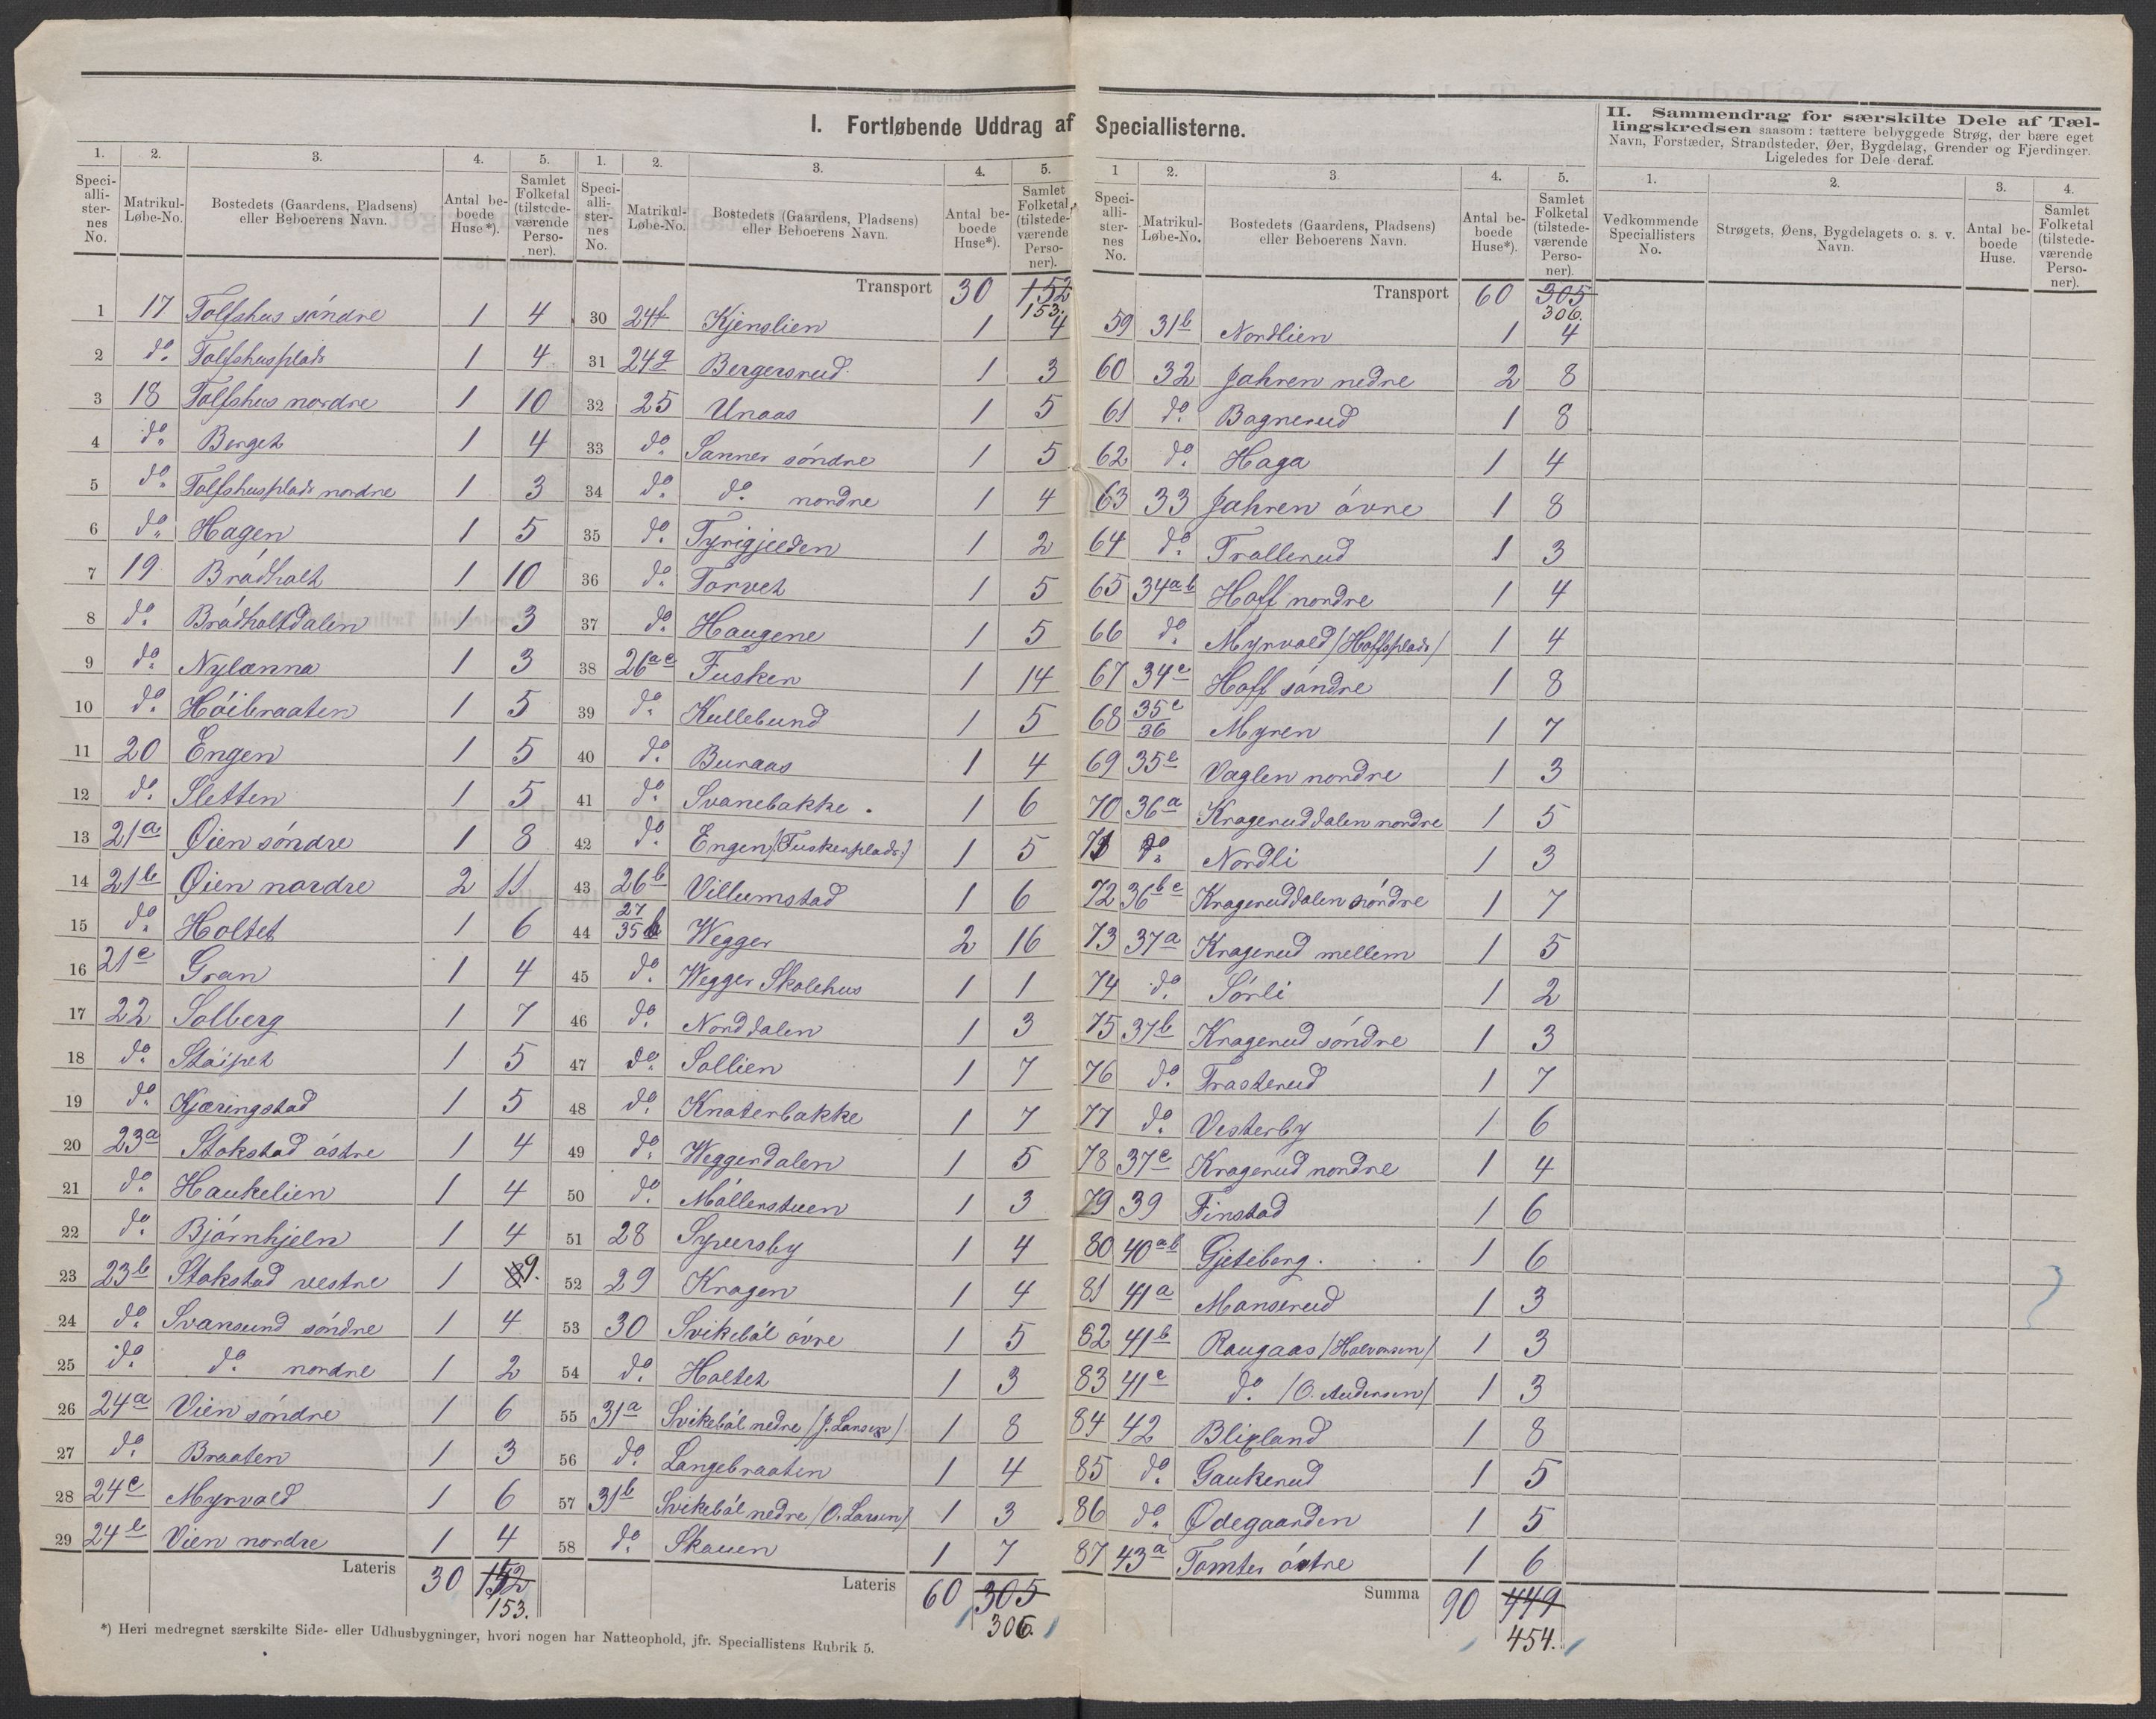 I. Fortløbende Uddrag af Speciallisterne.
1. 2. 3. 4. 5.
Speciallisternes No. Matrikul-Løbe-No. Bostedets (Gaardens, Pladsens) eller Beboerens Navn. Antal beboede Huse*). Samlet Folketal (tilstedeværende Personer).
1 17 Tolfshus söndre 1 4
2 do. Tolfshusplads 1 4
3 18 Tolfshus nordre 1 10
4 do. Berget 1 4
5 do. Tolfshusplads nordre 1 3
6 do. Hagen 1 5
7 19 Brådholt 1 10
8 do. Brådholtdalen 1 3
9 do. Nylænna 1 3
10 do. Höibraaten 1 5
11 20 Engen 1 5
12 do. Sletten 1 5
13 21a Øien söndre 1 8
14 21b Øien nordre 2 11
15 do. Holtet 1 6
16 21c Gran 1 4
17 22 Solberg 1 7
18 do. Stöipet 1 5
19 do. Kjæringstad 1 5
20 23a Stokstad östre 1 4
21 do. Haukelien 1 4
22 do. Bjórnhjeln 1 4
23 23b Stokstad vestre 1 9.
24 do. Svansund söndre 1 4
25 do. do. nordre 1 2
26 24a Vien söndre 1 6
27 do. Braaten 1 3
28 24c Myrvold 1 6
29 24b Vien nordre 1 4
Lateris 30 152
153.
*) Heri medregnet særskilte Side- eller Udhusbygninger, hvori nogen har Natteophold, jfr. Speciallistens Rubrik 5.
1. 2. 3. 4. 5.
Speciallisternes No. Matrikul-Løbe-No. Bostedets (Gaardens, Pladsens) eller Beboerens Navn. Antal beboede Huse*). Samlet Folketal (tilstedeværende Personer).
Transport 30 152
153.
30 24f Kjenslien 1 4
31 24g Bergersrud 1 3
32 25 Unaas 1 5
33 do. Sanner söndre 1 5
34 do. do. nordre 1 4
35 do. Tyrigjelden 1 2
36 do. Torvet 1 5
37 do. Haugene 1 5
38 26ac Fusken 1 14
39 do. Kullebund 1 5
40 do. Buraas 1 4
41 do. Svanebakke. 1 6
42 do. Engen (Fuskenplads) 1 5
43 26b Villumstad 1 6
44 27/35b Wegger 2 16
45 do. Wegger Skolehus 1 1
46 do. Norddalen 1 3
47 do. Sollien 1 7
48 do. Knaterbakke 1 7
49 do. Weggerdalen 1 5
50 do. Möllerstuen 1 3
51 28 Syversby 1 4
52 29 Kragen 1 4
53 30 Svikeböl övre 1 5
54 do. Holtet 1 3
55 31a Svikeböl nedre (J. Larsen) 1 8
56 do. Langebraaten 1 4
57 31b Svikeböl nedre (O. Larsen) 1 3
58 do. Skauen 1 7
Lateris 60 305
306.
1 2. 3. 4. 5.
Speciallisternes No. Matrikul-Løbe-No. Bostedets (Gaardens, Pladsens) eller Beboerens Navn. Antal beboede Huse*). Samlet Folketal (tilstedeværende Personer).
Transport 60 305
306.
59 31b Nordlien 1 4
60 32 Jahren nedre 2 8
61 do. Bagnerud 1 8
62 do. Haga 1 4
63 33 Jahren övre 1 8
64 do. Trollerud 1 3
65 34ab Hoff nordre 1 4
66 do. Myrvold (Hoffsplads) 1 4
67 34c Hoff söndre 1 8
68 35c/36 Myren 1 7
69 35e Vaglen nordre 1 3
70 36a Krageruddalen nordre 1 5
71 do. Nordli 1 3
72 36bc Krageruddalen söndre 1 7
73 37a Kragerud mellem 1 5
74 do. Sörli 1 2
75 37b Kragerud söndre 1 3
76 do. Trasterud 1 7
77 do. Vesterby 1 6
78 37c Kragerud nordre 1 4
79 39 Finstad 1 6
80 40ab Gjeteberg. 1 6
81 41a Manserud 1 3
82 41b Raugaas (Halvorsen) 1 3
83 41c do. (O. Andersen) 1 3
84 42 Blixland 1 8
85 do. Gaukerud 1 5
86 do. Ödegaarden 1 5
87 43a Tomter östre 1 6
Summa 90 449
454.
II. Sammendrag for særskilte Dele af Tællingskredsen saasom: tættere bebyggede Strøg, der bære eget Navn, Forstæder, Strandsteder, Øer, Bygdelag, Grender og Fjerdinger. Ligeledes for Dele deraf.
1. 2. 3. 4.
Vedkommende Speciallisters No. Strøgets, Øens, Bygdelagets o. s. v. Navn. Antal beboede Huse. Samlet Folketal (tilstedeværende Personer).